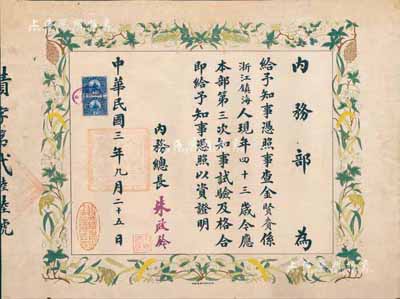 內務部 為
給予知事憑照事查金賢寀係
浙江鎮海人現年四十三歲今應
本部第三次知事試驗及格合
即給予知事憑照以資證明
內務總長 朱啟鈐
中華民國三年九月二十五日